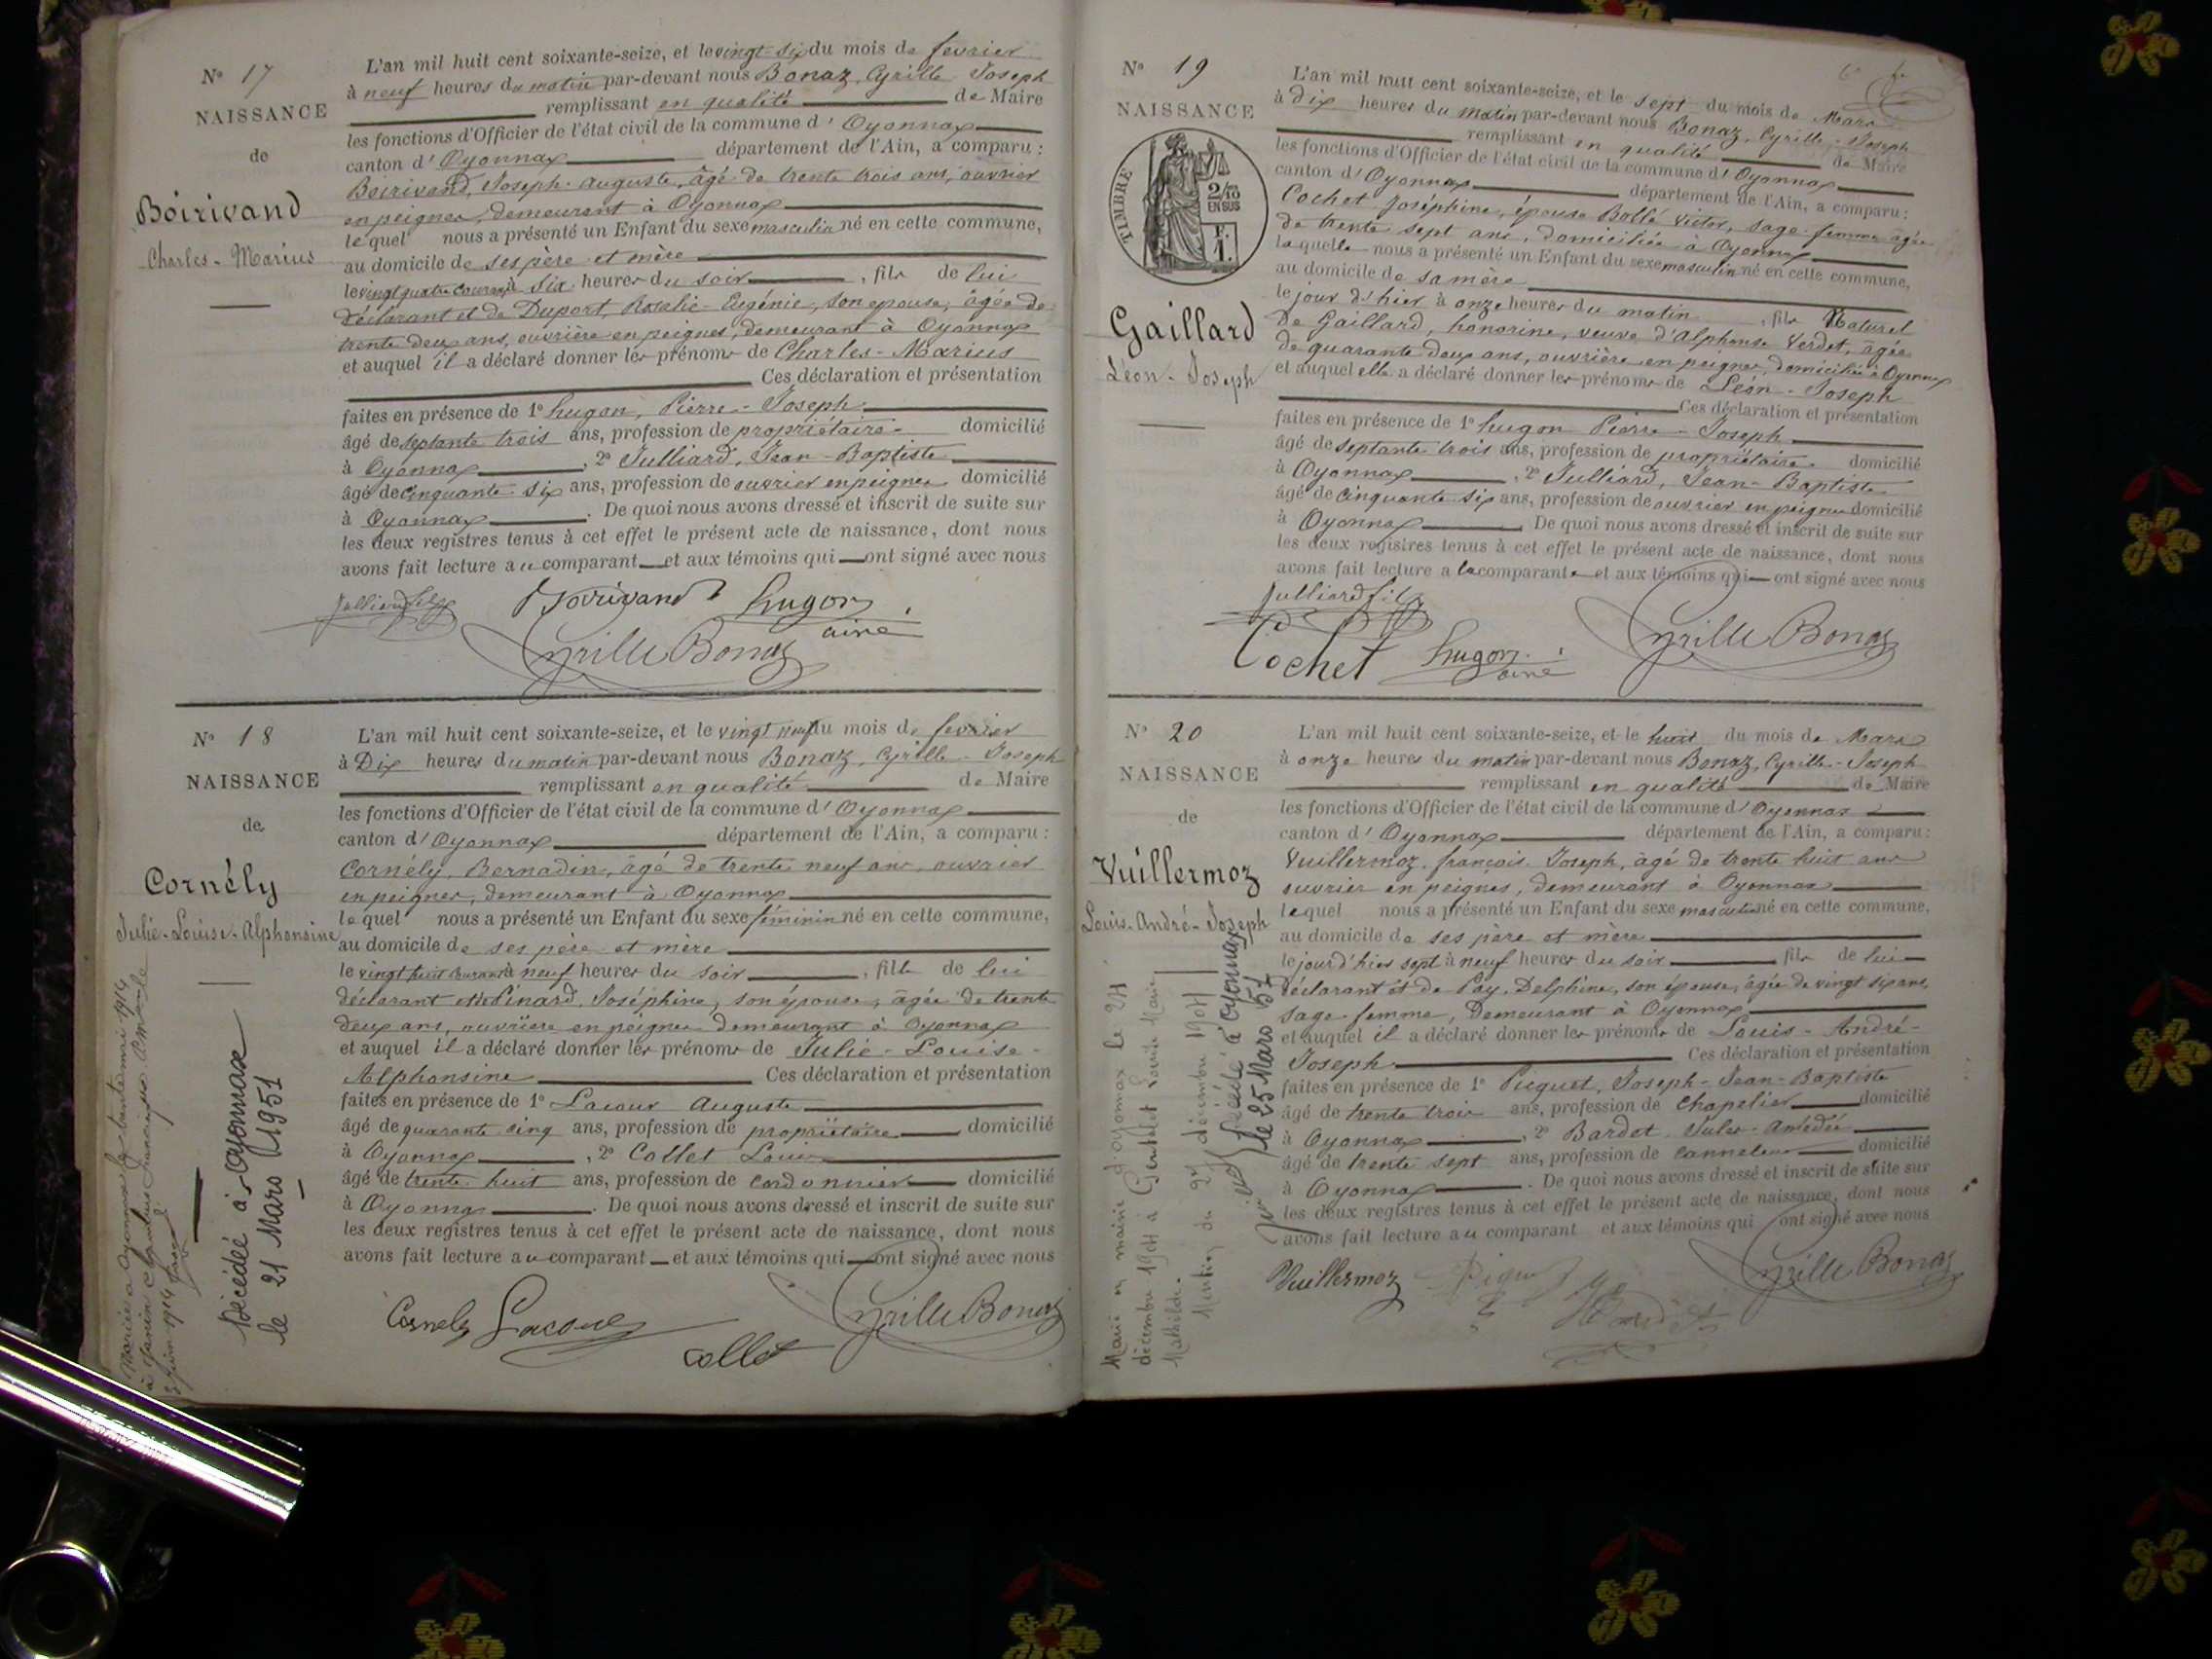 N° 17
NAISSANCE
de
Boirivand
Charles-Marius
L'an mil huit cent soixante-seize, et le vingt-six du mois de fevrier
à neuf heures du matin par-devant nous Bonaz, Cyrille Joseph
remplissant en qualité de Maire
les fonctions d'Officier de l'état civil de la commune d'Oyonnax
canton d'Oyonnax département de l'Ain, a comparu :
Boirivand, Joseph-auguste, âgé de trente trois ans, ouvrier
en peignes, demeurant à Oyonnax
lequel nous a présenté un Enfant du sexe masculin né en cette commune,
au domicile de ses père et mère
le vingt quatre courant à six heures du soir, fils de lui
déclarant et de Duport, Rosalie-Eugénie, son épouse, âgée de
trente deux ans, ouvrière en peignes, demeurant à Oyonnax
et auquel il a déclaré donner les prénoms de Charles-Marius
Ces déclaration et présentation
faites en présence de 1° hugon, Pierre-Joseph
âgé de septante trois ans, profession de propriétaire domicilié
à Oyonnax, 2° Julliard, Jean-Baptiste
âgé de cinquante six ans, profession de ouvrier en peignes domicilié
à Oyonnax. De quoi nous avons dressé et inscrit de suite sur
les deux registres tenus à cet effet le présent acte de naissance, dont nous
avons fait lecture au comparant et aux témoins qui ont signé avec nous
Julliard fils Boirivand hugon
ainé
Cyrille Bonaz
N° 18
NAISSANCE
de
Cornély
Julie-Louise-Alphonsine
Mariée à Oyonnax le trente mai 1914
à
2 juin 1914
Décédée à Oyonnax
le 21 Mars 1951
L'an mil huit cent soixante-seize, et le vingt neuf du mois de fevrier
à Dix heures du matin par-devant nous Bonaz, Cyrille-Joseph
remplissant en qualité de Maire
les fonctions d'Officier de l'état civil de la commune d'Oyonnax
canton d'Oyonnax département de l'Ain, a comparu :
Cornély, Bernadin, âgé de trente neuf ans, ouvrier
en peignes, demeurant à Oyonnax
lequel nous a présenté un Enfant du sexe féminin né en cette commune,
au domicile de ses père et mère
le vingt huit courant à neuf heures du soir, fille de lui
déclarant et de Pinard, Joséphine, son épouse, âgée de trente
deux ans, ouvrière en peignes demeurant à Oyonnax
et auquel il a déclaré donner les prénoms de Julie-Louise-
Alphonsine Ces déclaration et présentation
faites en présence de 1° Lacour Auguste
âgé de quarante cinq ans, profession de propriétaire domicilié
à Oyonnax, 2° Collet Louis
âgé de trente huit ans, profession de cordonnier domicilié
à Oyonnax. De quoi nous avons dressé et inscrit de suite sur
les deux registres tenus à cet effet le présent acte de naissance, dont nous
avons fait lecture au comparant et aux témoins qui ont signé avec nous
Cornely Lacour Cyrille Bonaz
Collet
N° 19
NAISSANCE
TIMBRE
2/10
EN SUS
F.
1.
Gaillard
Léon-Joseph
L'an mil huit cent soixante-seize, et le sept du mois de Mars
à dix heures du matin par-devant nous Bonaz, Cyrille-Joseph
remplissant en qualité de Maire
les fonctions d'Officier de l'état civil de la commune d'Oyonnax
canton d'Oyonnax département de l'Ain, a comparu :
Cochet Joséphine, épouse Bollé Victor, sage-femme âgée
de trente sept ans, domiciliée à Oyonnax
laquelle nous a présenté un Enfant du sexe masculin né en cette commune,
au domicile de sa mère
le jour d'hier à onze heures du matin, fils Naturel
de Gaillard, honorine, veuve d'Alphonse Verdet, âgée
de quarante deux ans, ouvrière en peignes, domiciliée à Oyonnax
et auquel elle a déclaré donner les prénoms de Léon-Joseph
Ces déclaration et présentation
faites en présence de 1° hugon Pierre-Joseph
âgé de septante trois ans, profession de propriétaire domicilié
à Oyonnax, 2° Julliard, Jean-Baptiste
âgé de cinquante six ans, profession de ouvrier en peignes domicilié
à Oyonnax. De quoi nous avons dressé et inscrit de suite sur
les deux registres tenus à cet effet le présent acte de naissance, dont nous
avons fait lecture a la comparante et aux témoins qui ont signé avec nous
Julliard fils
Cochet hugon Cyrille Bonaz
ainé
N° 20
NAISSANCE
de
Vuillermoz
Louis-André-Joseph
Marié en mairie d'Oyonnax le 24
décembre 1904 à Louise Marie
Mathilde.
Mention du décembre 1904
Décédé à Oyonnax
le 25 Mars 57
L'an mil huit cent soixante-seize, et le huit du mois de Mars
à onze heures du matin par-devant nous Bonaz, Cyrille-Joseph
remplissant en qualité de Maire
les fonctions d'Officier de l'état civil de la commune d'Oyonnax
canton d'Oyonnax département de l'Ain, a comparu :
Vuillermoz, françois Joseph, âgé de trente huit ans
ouvrier en peignes, demeurant à Oyonnax
lequel nous a présenté un Enfant du sexe masculin né en cette commune,
au domicile de ses père et mère
le jour d'hier sept à neuf heures du soir fils de lui
déclarant et de Pay, Delphine, son épouse, âgée de vingt six ans,
sage-femme, Demeurant à Oyonnax
et auquel il a déclaré donner les prénoms de Louis-André-
Joseph Ces déclaration et présentation
faites en présence de 1° Piquet, Joseph-Jean-Baptiste
âgé de trente trois ans, profession de chapelier domicilié
à Oyonnax, 2° Bardet Jules-Amédée
âgé de trente sept ans, profession de canneleur domicilié
à Oyonnax. De quoi nous avons dressé et inscrit de suite sur
les deux registres tenus à cet effet le présent acte de naissance, dont nous
avons fait lecture au comparant et aux témoins qui ont signé avec nous
Vuillermoz Cyrille Bonaz